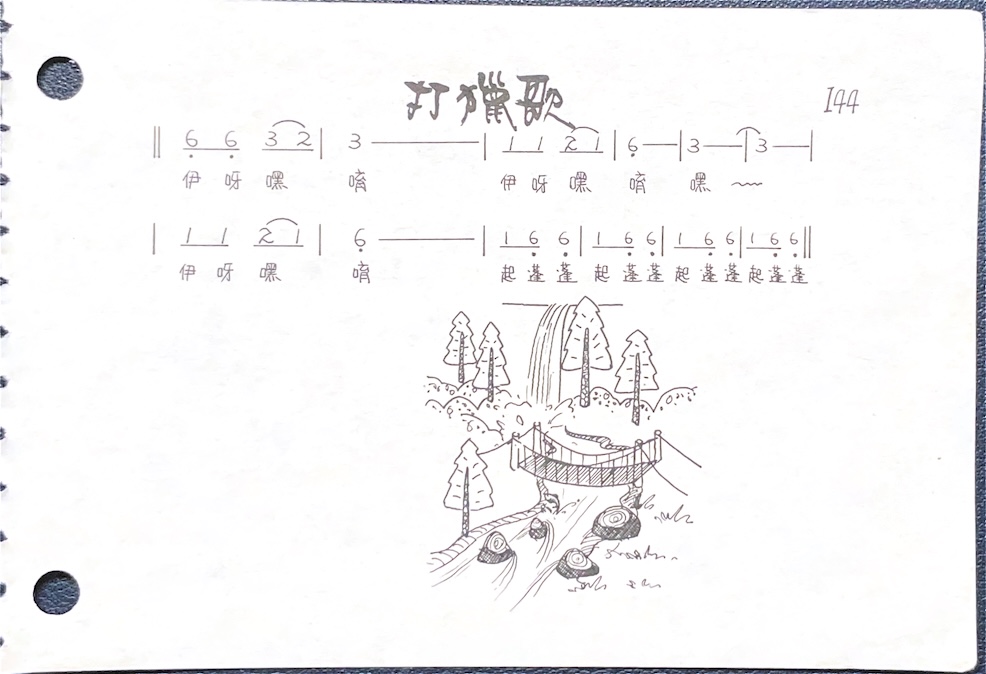 打獵歌
I44
‖ 6̣ 6̣ 3 2 | 3 —— | 1 1 2 1 | 6̣ — | 3 — | 3 — |
伊 呀 嘿 唷 伊 呀 嘿 唷 嘿 ~~
| 1 1 2 1 | 6̣ —— | 1 6̣ 6̣ | 1 6̣ 6̣ | 1 6̣ 6̣ | 1 6̣ 6̣ ‖
伊 呀 嘿 唷 起 蓬 蓬 起 蓬 蓬 起 蓬 蓬 起 蓬 蓬